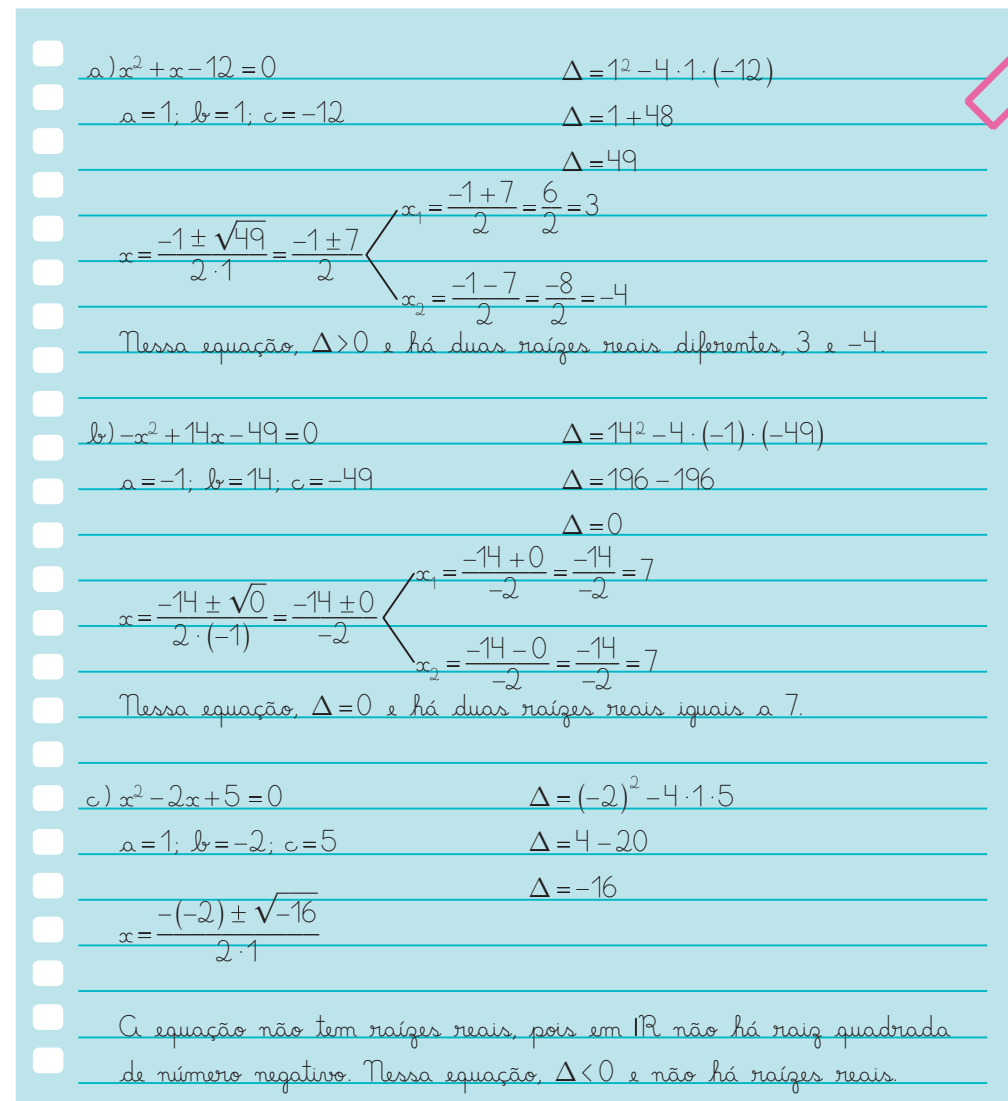 a) x² + x − 12 = 0    Δ = 1² − 4 · 1 · (−12)
a = 1; b = 1; c = −12    Δ = 1 + 48
Δ = 49
x = (−1 ± √49)/(2 · 1) = (−1 ± 7)/2
x₁ = (−1 + 7)/2 = 6/2 = 3
x₂ = (−1 − 7)/2 = −8/2 = −4
Nessa equação, Δ > 0 e há duas raízes reais diferentes, 3 e −4.
b) −x² + 14x − 49 = 0    Δ = 14² − 4 · (−1) · (−49)
a = −1; b = 14; c = −49    Δ = 196 − 196
Δ = 0
x = (−14 ± √0)/(2 · (−1)) = (−14 ± 0)/−2
x₁ = (−14 + 0)/−2 = −14/−2 = 7
x₂ = (−14 − 0)/−2 = −14/−2 = 7
Nessa equação, Δ = 0 e há duas raízes reais iguais a 7.
c) x² − 2x + 5 = 0    Δ = (−2)² − 4 · 1 · 5
a = 1; b = −2; c = 5    Δ = 4 − 20
Δ = −16
x = (−(−2) ± √−16)/(2 · 1)
A equação não tem raízes reais, pois em ℝ não há raiz quadrada
de número negativo. Nessa equação, Δ < 0 e não há raízes reais.